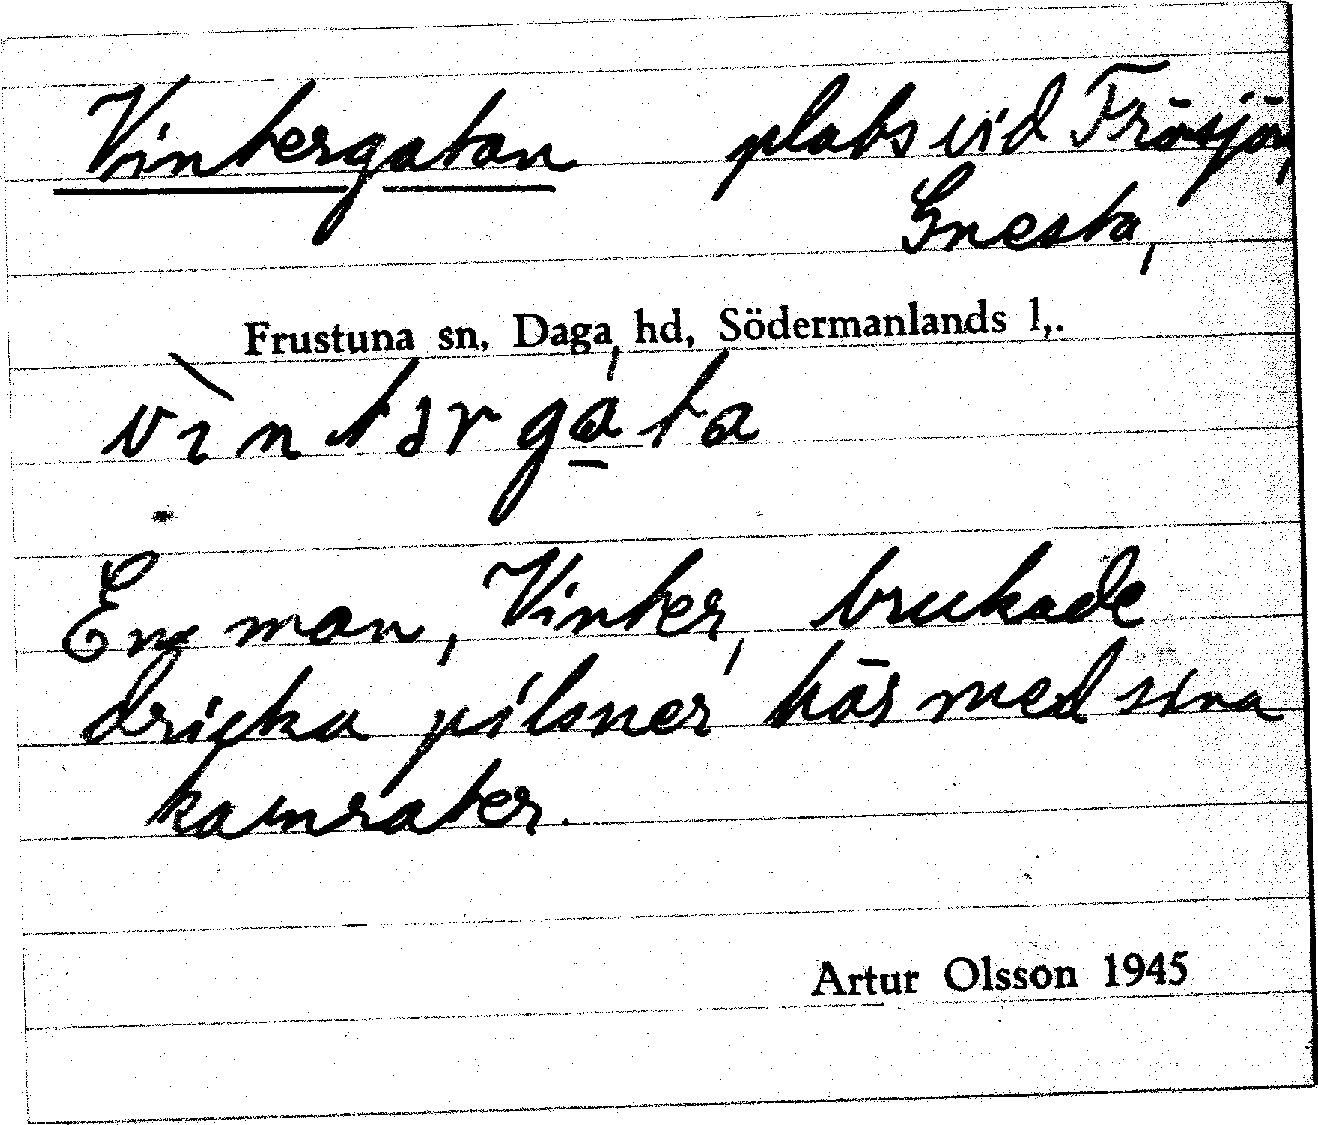 Vintergatan plats vid Frösjön,
Gnesta,
Frustuna sn, Daga hd, Södermanlands l,.
vìntərgáta
En man, Vinter, brukade
dricka pilsner här med sina
kamrater.
Artur Olsson 1945